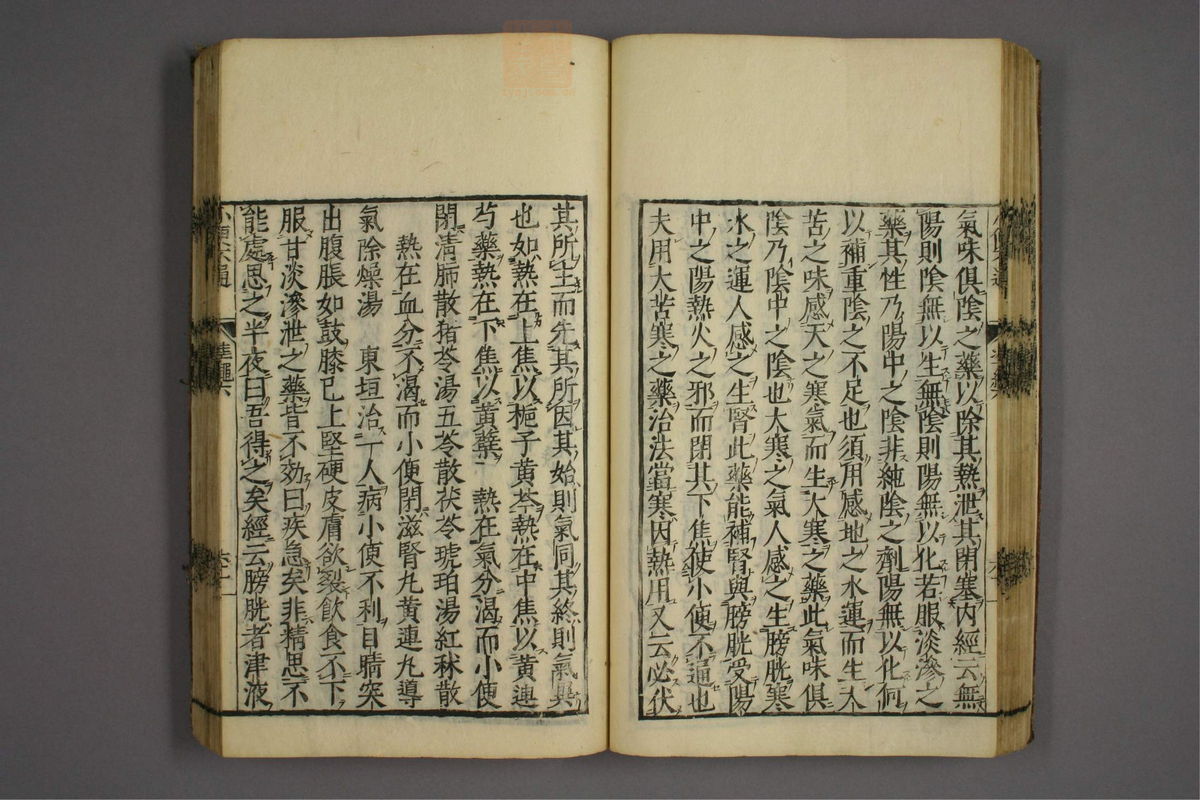 氣味俱陰之藥以除其熱泄其閉塞内經云無
陽則陰無以生無陰則陽無以化若服淡滲之
藥其性乃陽中之陰非純陰之劑陽無以化何
以補重陰之不足也須用感地之水運而生大
苦之味感天之寒氣而生大寒之藥此氣味俱
陰乃陰中之陰也大寒之氣人感之生膀胱寒
水之運人感之生腎此藥能補腎與膀胱受陽
中之陽熱火之邪而閉其下焦使小便不通也
夫用大苦寒之藥治法當寒因熱用又云必伏
其所主而先其所因其始則氣同其終則氣異
也如熱在上焦以梔子黄芩熱在中焦以黄連
芍藥熱在下焦以黄蘗 熱在氣分渴而小便
閉清肺散猪苓湯五苓散茯苓琥珀湯紅秫散
熱在血分不渴而小便閉滋腎丸黄連丸導
氣除燥湯 東垣治一人病小便不利目睛突
出腹脹如鼓膝已上堅硬皮膚欲裂飲食不下
服甘淡滲泄之藥皆不効曰疾急矣非精思不
能處思之半夜曰吾得之矣經云膀胱者津液